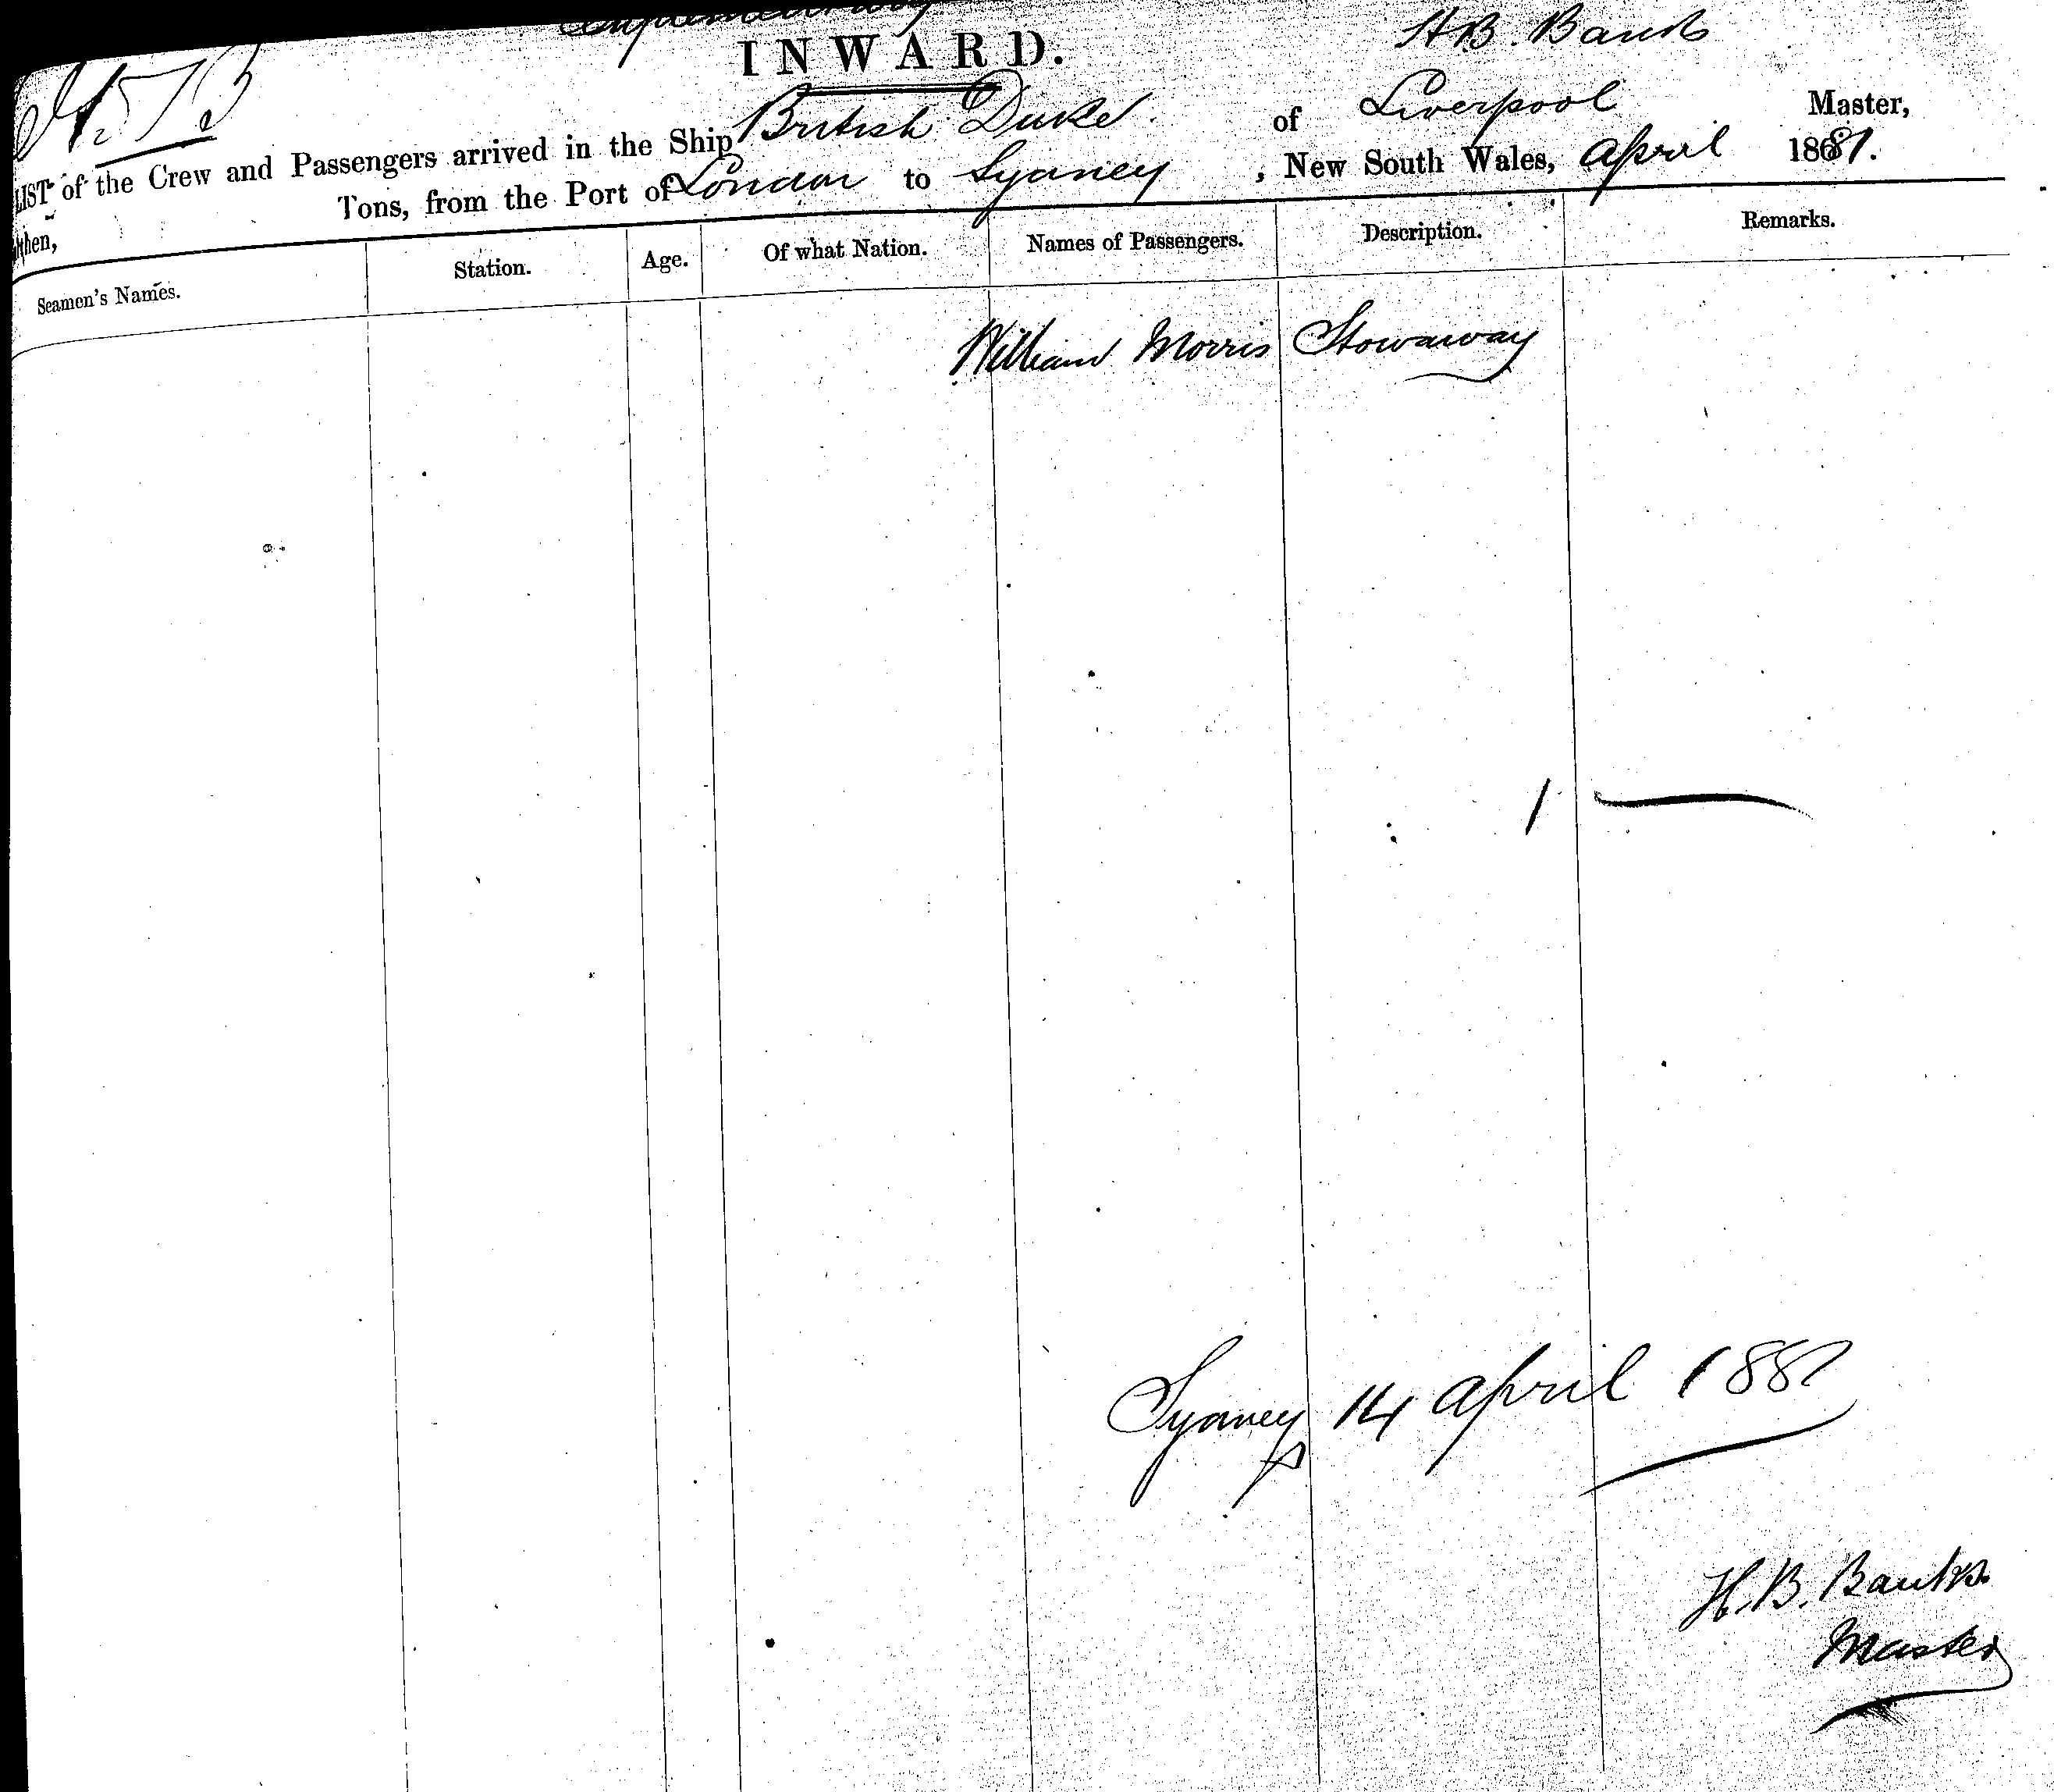 INWARD.
H B. Banks
LIST of the Crew and Passengers arrived in the Ship British Duke of Liverpool Master,
Tons, from the Port of London to Sydney, New South Wales, April 1881.
Seamen's Names. Station. Age. Of what Nation. Names of Passengers. Description. Remarks.
William Morris Stowaway
1
Sydney 14 April 1881
H. B. Banks
Master